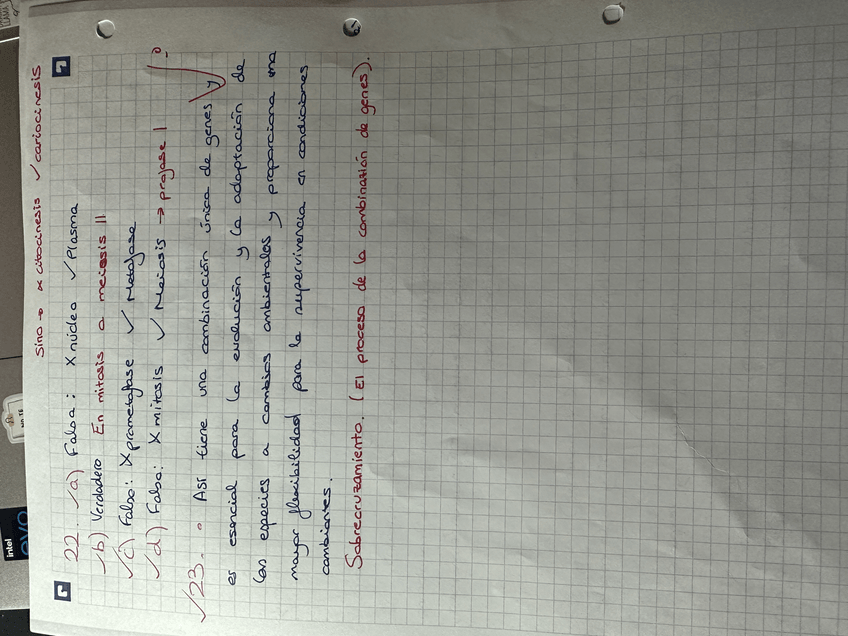 Sino → x citocinesis ✓ cariocinesis
22. ✓a) Falsa: X núcleo ✓ Plasma
✓b) Verdadero En mitosis o meiosis II
✓c) Falso: X prometafase ✓ Metafase
✓d) Falso: X mitosis ✓ Meiosis → profase I
✓23. Así tiene una combinación única de genes y
es esencial para la evolución y la adaptación de
las especies a cambios ambientales y proporciona una
mayor flexibilidad para la supervivencia en condiciones
cambiantes.
Sobrecruzamiento. (El proceso de la combinación de genes).
intel
evo